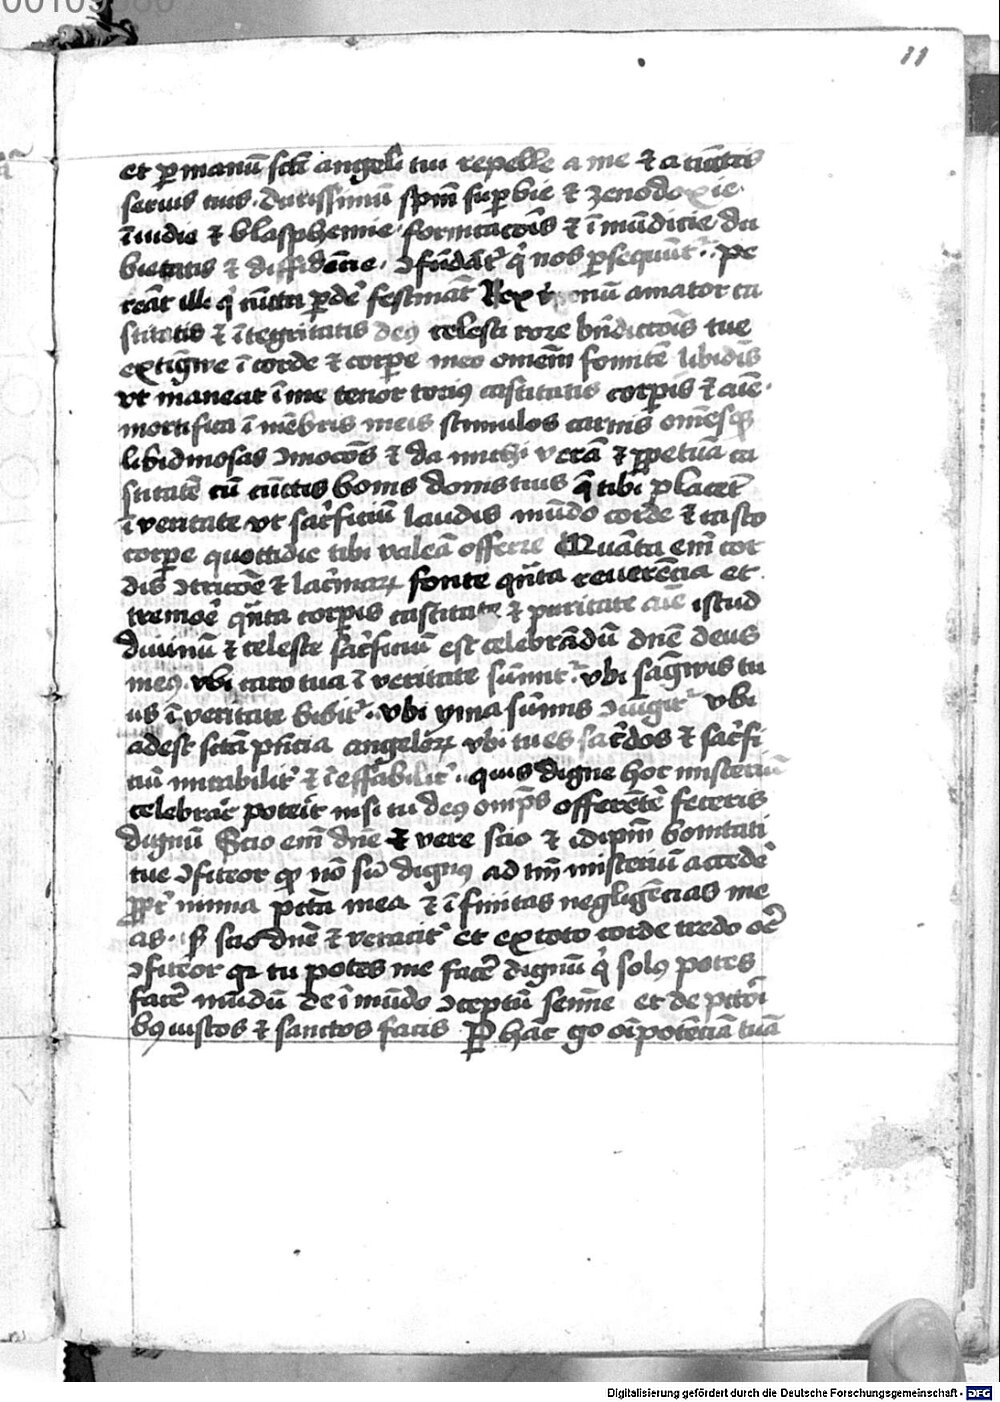 11
et ꝑ manū sc̄ti angeli tui repelle a me ⁊ a cūctis
seruis tuis. durissimū sp̄m suꝑbie ⁊ zenodoxie.
īuidie ⁊ blasphemie. fornicacōis ⁊ īmūdicie. du
bietatis ⁊ diffidēcie. ꝯfūdāt᷑ q̇ nos ꝑsequūt᷑. Pe
reāt illi q̇ cūcta ꝑde᷑ festināt Rex v̇ginū amator ca
stitatis ⁊ ītegritatis deꝰ celesti rore bn̄dictōis tue
extīgwe ī corde ⁊ corꝑe meo omēm fomitē libidīs
vt maneat ī me tenor tociꝰ castitatis corꝑis ⁊ aīe.
mortifica ī mēbris meis stimulos carnis om̄esqꝫ
libidinosas ꝯmocōes ⁊ da michi verā ⁊ ꝑpetuā ca
stitatē cū cūctis bonis donis tuis q̄ tibi placēt
ī veritate vt sac̓ficiū laudis mūdo corde ⁊ casto
corꝑe quottidie tibi valeā offerre Quāta em̄ cor
dis ꝯtricōe ⁊ lac̓maꝝ fonte qn̄ta reuerēcia et
tremoē qn̄ta corꝑis castitate ⁊ puritate aīe istud
diuinū ⁊ celeste sac̓ficiū est celebrādū dn̄e deus
meꝰ. vbi caro tua ī veritate sūmit᷑. vbi sāgwis tu
us ī veritate bibit᷑. vbi yma sūmis ꝯiūgit᷑ vbi
adest sc̄tā pn̄tia angeloꝝ vbi tu es sac̓dos ⁊ sac̓fi
ciū mirabilit᷑ ⁊ īeffabilit᷑. quis digne hoc misteriū
celebrāe poterit nisi tu deꝰ omp̄s offerētē feceris
dignū Scio em̄ dn̄e ⁊ vere scio ⁊ idip̄m bonitati
tue ꝯfiteor ꝙ nō sū dignꝰ ad tm̄ misteriū accede᷑
ꝓpt᷑ nimia pctā mea ⁊ īfinitas negligēcias me
as. sꝫ scio dn̄e ⁊ veracit᷑ et ex toto corde credo oē
ꝯfiteor qr tu potes me face᷑ dignū q̇ solꝰ potes
face᷑ mūdū de īmūdo ꝯceptū semīe et de pctōri
bꝰ iustos ⁊ sanctos facis Per hāc g̊o oīpotēciā tuā
Digitalisierung gefördert durch die Deutsche Forschungsgemeinschaft - DFG